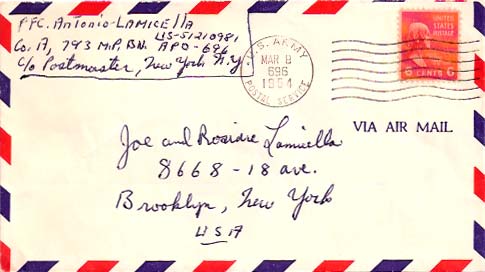 PFC. Antonio-LAMICELLA
US-51210981
Co. A, 793 M.P. BN. APO-696
c/o Postmaster, New York N.Y
U.S. ARMY
MAR 8
696
1954
POSTAL SERVICE
UNITED
STATES
POSTAGE
6 CENTS 6
VIA AIR MAIL
Joe and Rosidre Lamicella
8668-18 ave.
Brooklyn, New York
USA